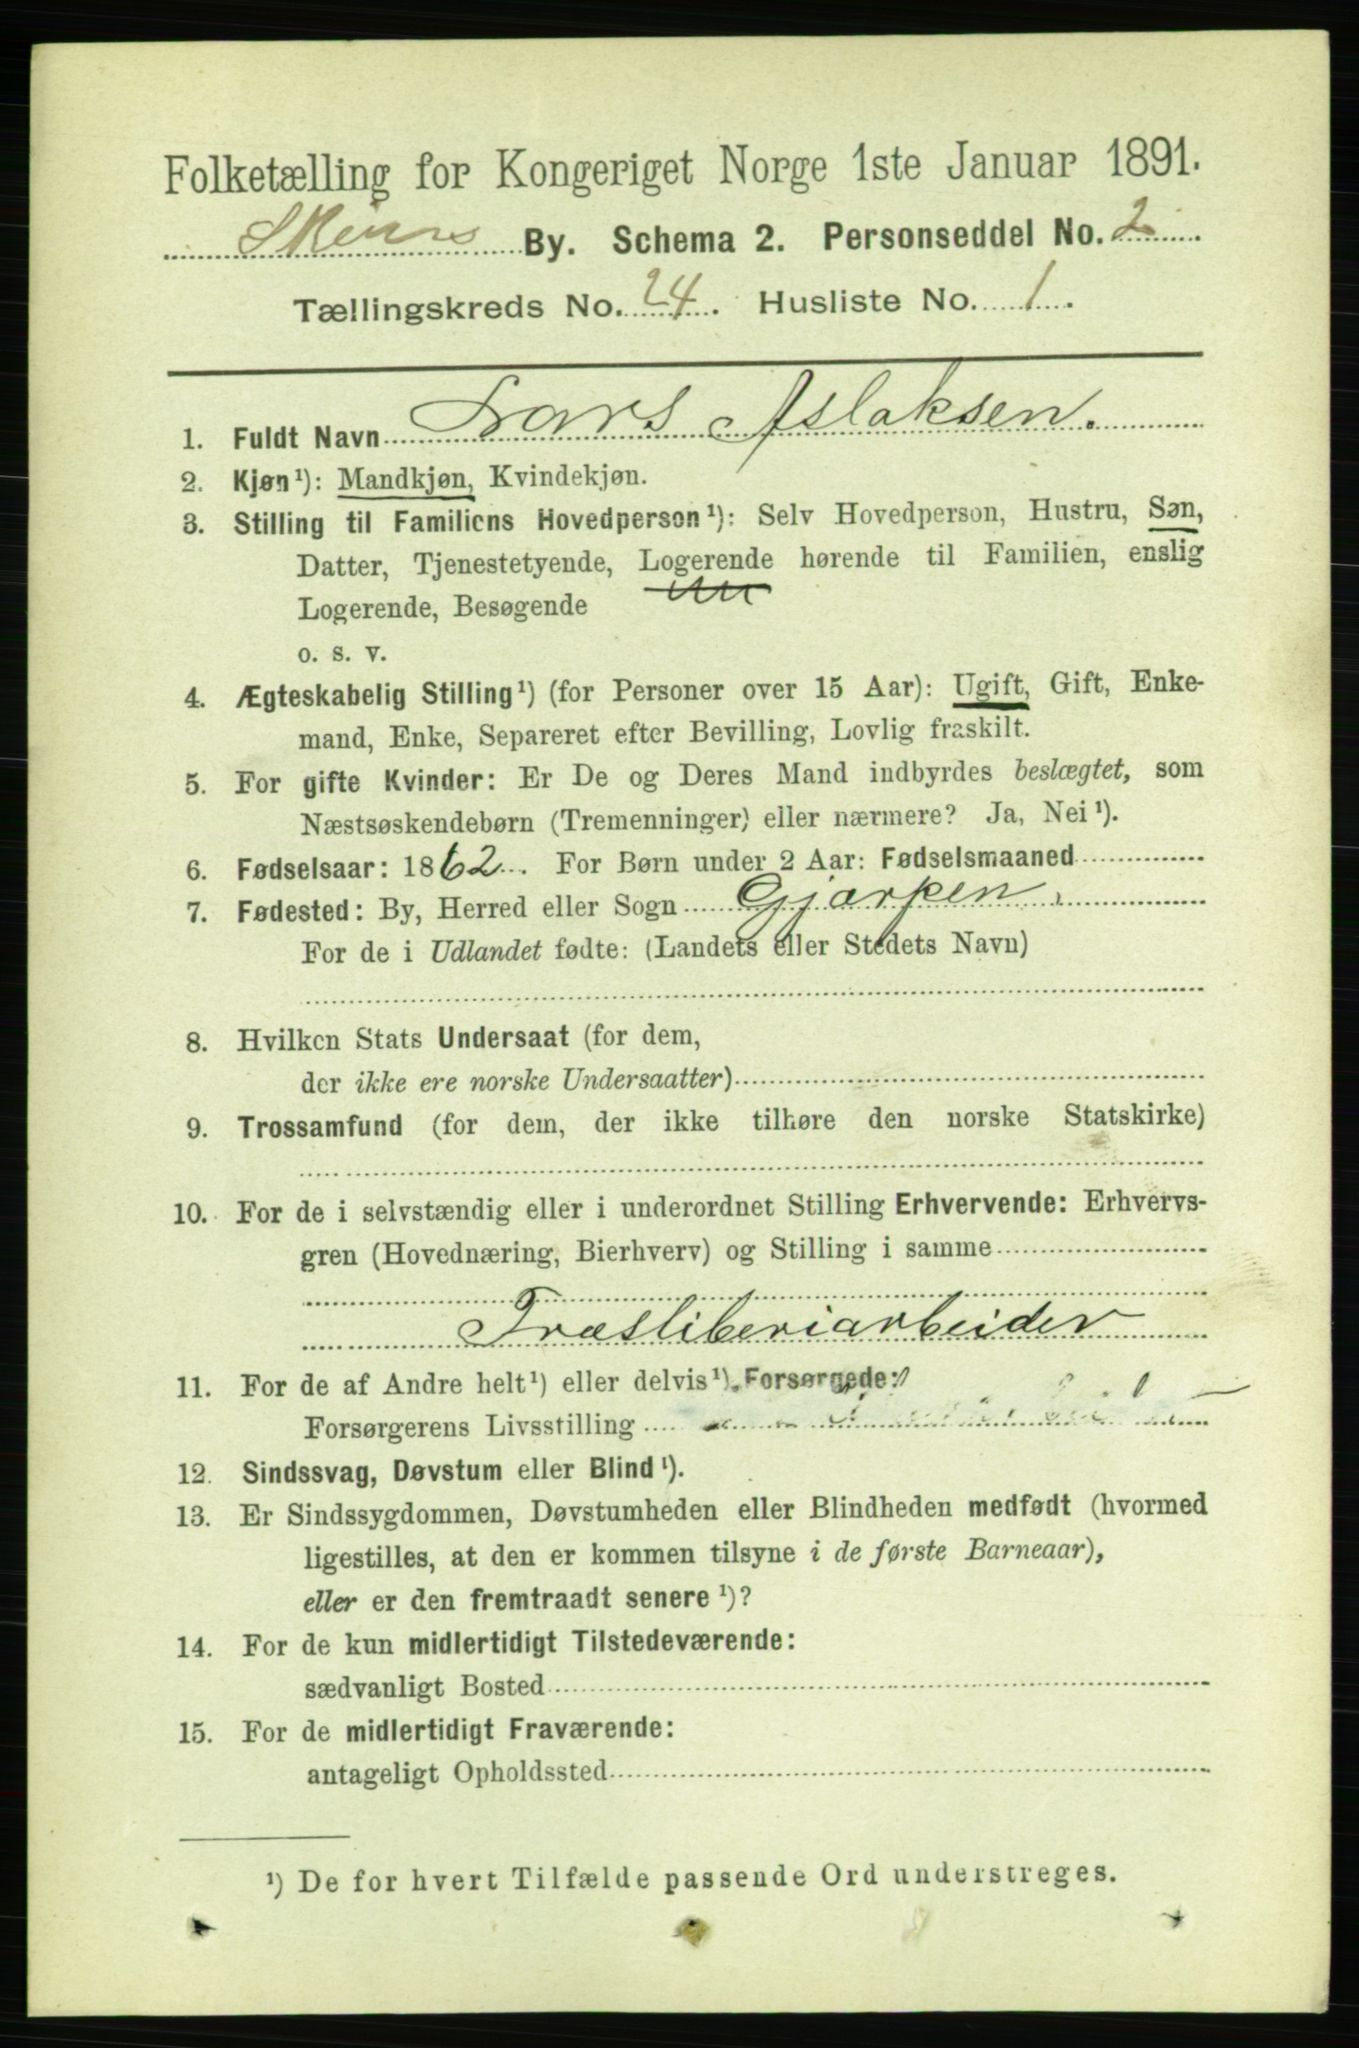 Folketælling for Kongeriget Norge 1ste Januar 1891.
Skiens By. Schema 2. Personseddel No. 2
Tællingskreds No. 24. Husliste No. 1.
1. Fuldt Navn Lars Aslaksen.
2. Kjøn¹): Mandkjøn, Kvindekjøn.
3. Stilling til Familiens Hovedperson¹): Selv Hovedperson, Hustru, Søn,
Datter, Tjenestetyende, Logerende hørende til Familien, enslig
Logerende, Besøgende
o. s. v.
4. Ægteskabelig Stilling¹) (for Personer over 15 Aar): Ugift, Gift, Enke-
mand, Enke, Separeret efter Bevilling, Lovlig fraskilt.
5. For gifte Kvinder: Er De og Deres Mand indbyrdes beslægtet, som
Næstsøskendebørn (Tremenninger) eller nærmere? Ja, Nei¹).
6. Fødselsaar: 1862. For Børn under 2 Aar: Fødselsmaaned
7. Fødested: By, Herred eller Sogn Gjærpen.
For de i Udlandet fødte: (Landets eller Stedets Navn)
8. Hvilken Stats Undersaat (for dem,
der ikke ere norske Undersaatter)
9. Trossamfund (for dem, der ikke tilhøre den norske Statskirke)
10. For de i selvstændig eller i underordnet Stilling Erhvervende: Erhvervs-
gren (Hovednæring, Bierhverv) og Stilling i samme
Træsliberiarbeider
11. For de af Andre helt¹) eller delvis¹) Forsørgede:
Forsørgerens Livsstilling
12. Sindssvag, Døvstum eller Blind¹).
13. Er Sindssygdommen, Døvstumheden eller Blindheden medfødt (hvormed
ligestilles, at den er kommen tilsyne i de første Barneaar),
eller er den fremtraadt senere¹)?
14. For de kun midlertidigt Tilstedeværende:
sædvanligt Bosted
15. For de midlertidigt Fraværende:
antageligt Opholdssted
¹) De for hvert Tilfælde passende Ord understreges.